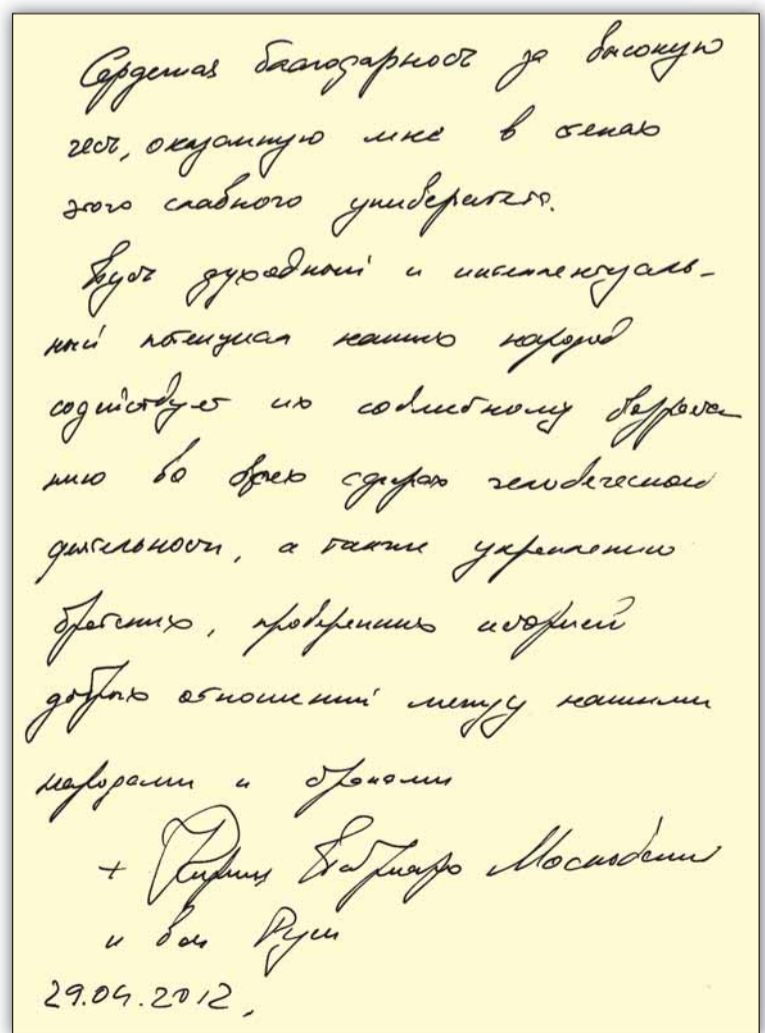 Сердечная благодарность за высокую
честь, оказанную мне в стенах
этого славного университета.
Пусть духовный и интеллектуаль-
ный потенциал наших народов
содействует их совместному возраста-
нию во всех сферах человеческой
деятельности, а также укреплению
братских, проверенных историей
добрых отношений между нашими
народами и странами
+ Кирилл Патриарх Московский
и всея Руси
29.04.2012.